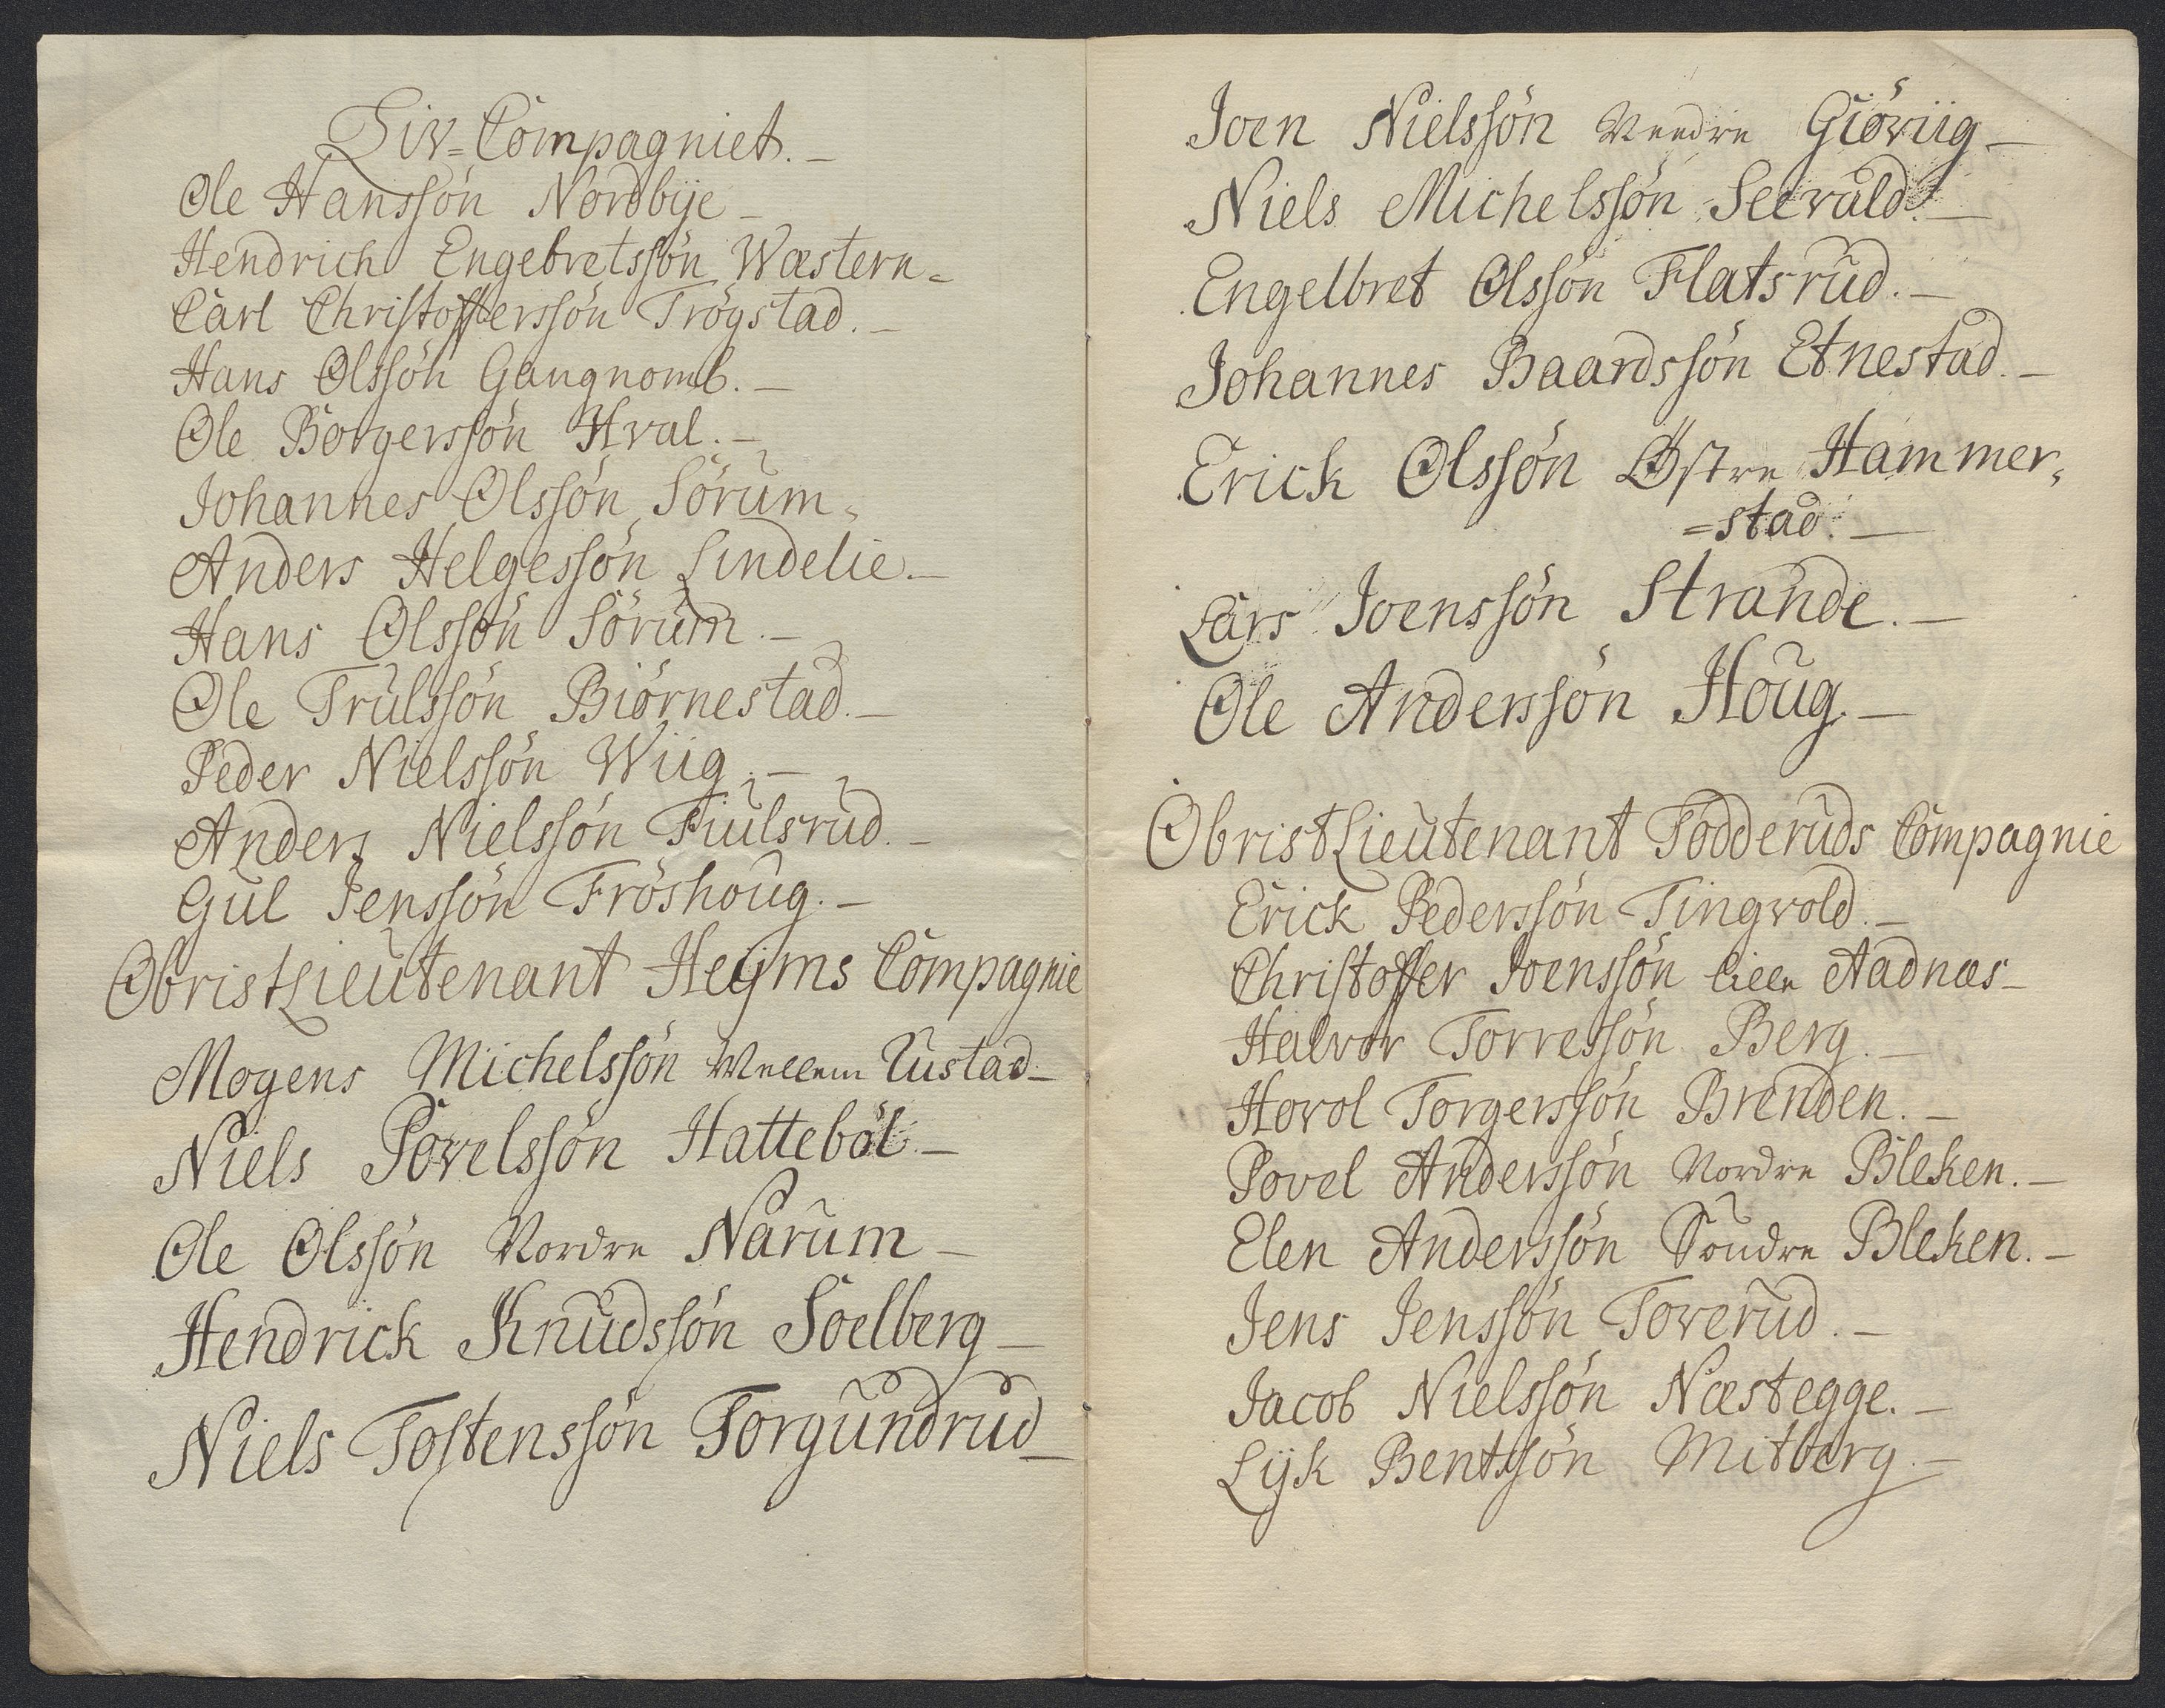 Liv=Compagniet. -
Ole Hanssön Nordbÿe -
Hendrich Engebretssön Wæstern -
Carl Christofferssön Trögstad. -
Hans Olssön Gangnomb. -
Ole Borgerssön Hval. -
Johannes Olssön Sörum -
Anders Helgessön Lindelie. -
Hans Olssön Sörum. -
Ole Trulssön Biörnestad. -
Peder Nielssön Wiig. -
Anders Nielssön Fiulsrud. -
Gul Jenssön Fröshoug. -
ObristLieutenant Heÿms Compagnie
Mogens Michelssön Mellem Tustad -
Niels Povelssön Hatteböl. -
Ole Olssön Nordre Narum -
Hendrick Knudssön Soelberg -
Niels Tostenssön Torgundrud -
Joen Nielssön Nendre Giöviig -
Niels Michelssön Seevald. -
Engelbret Olssön Flatsrud. -
Johannes Baardssön Etnestad. -
Erick Olssön Östre Hammer=
=stad. -
Lars Joenssön Strande. -
Ole Anderssön Houg. -
ObristLieutenant Todderuds Compagnie
Erick Pederssön Tingvold. -
Christoffer Joenssön Lille Aadnæs -
Halvor Torressön Berg. -
Hovol Torgerssön Brenden. -
Povel Anderssön Nordre Bleken. -
Elen Anderssön Söndre Bleken. -
Jens Jenssön Toverud. -
Jacob Nielssön Næstegge. -
Lÿk Bentssön Mitberg. -